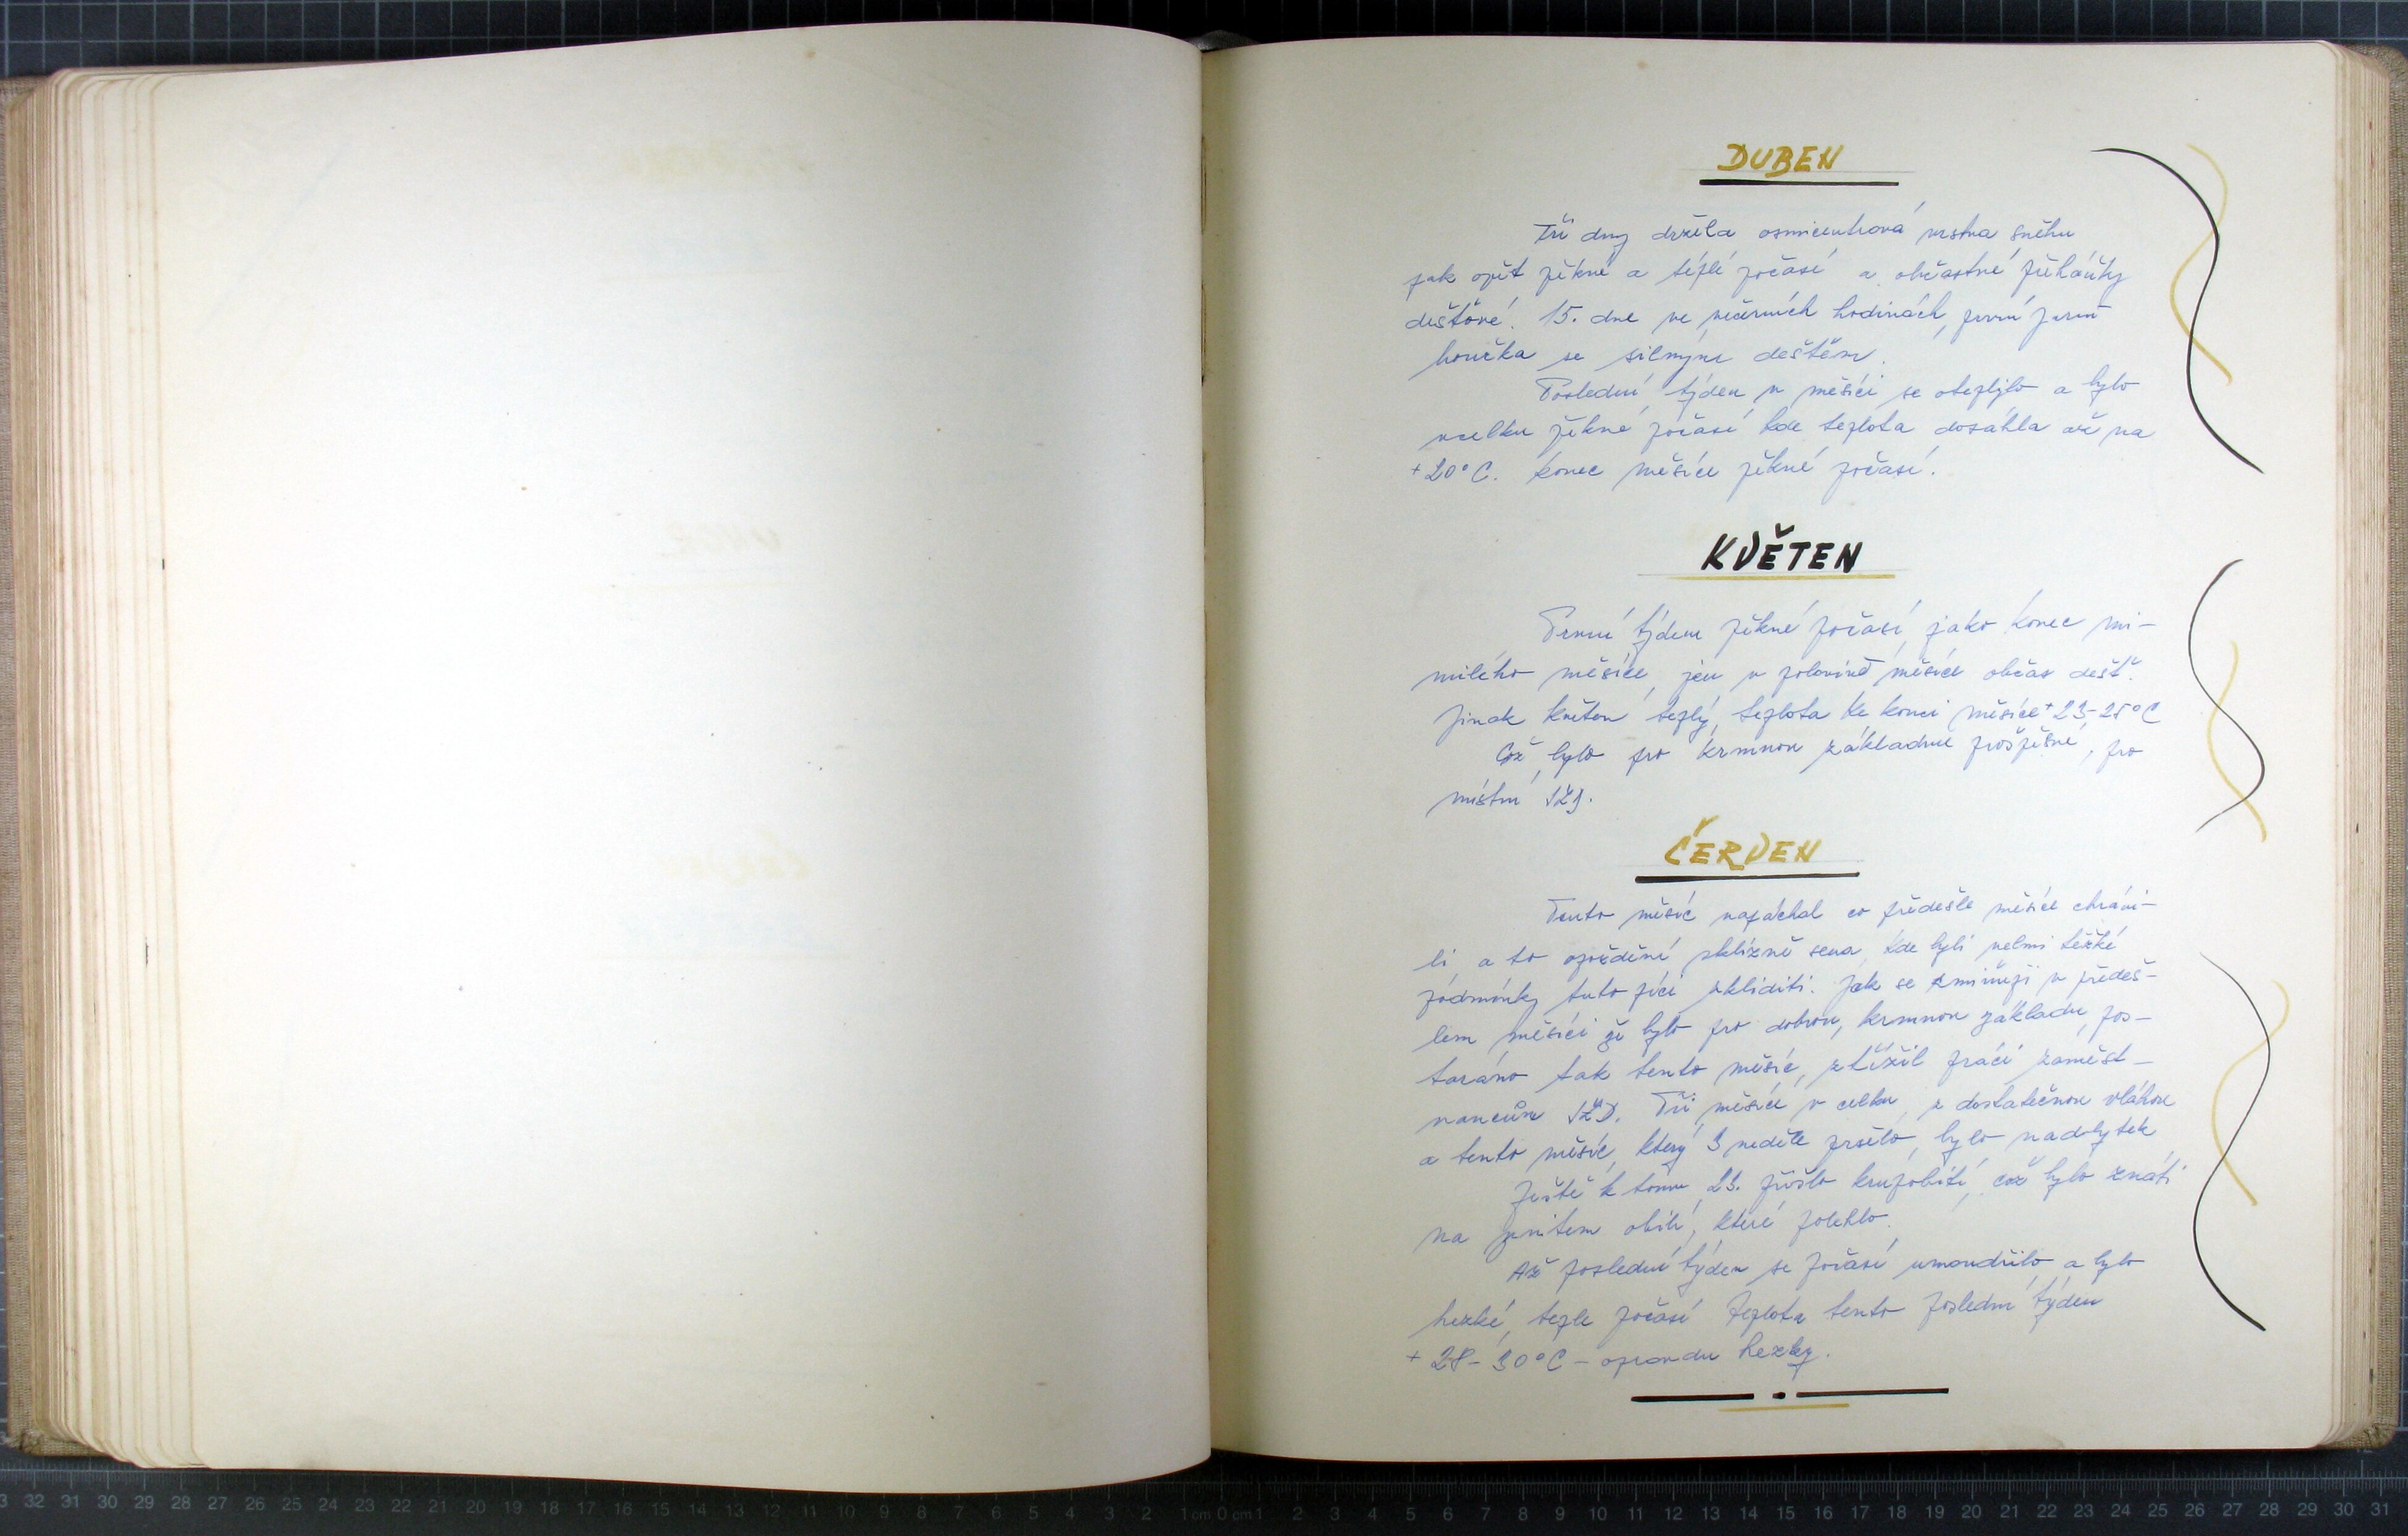 DUBEN
Tři dny držela osmicentrová vrstva sněhu
pak opět pěkné a téplé počasí a občastné přeháňky
dešťové. 15. dne ve večerních hodinách, první jarní
bouřka se silným deštěm.
Poslední týden v měsíci se oteplylo a bylo
vcelku pěkné počasí kde teplota dosáhla až na
+20°C. Konec měsíce pěkné počasí.
KVĚTEN
První týden pěkné počasí, jako konec mi-
nulého měsíce, jen v polovině měsíce občas dešť.
Jinak květen teplý, teplota ke konci měsíce +23-25°C
Což bylo pro krmnou základnu prospěšné, pro
místní SŽD.
ČERVEN
Tento měsíc napáchal co předešlé měsíce chráni-
li a to opoždění sklizně sena, kde byli velmi těžké
podmínky tuto píci skliditi. Jak se zmiňuji v předeš-
lem měsíci že bylo pro dobrou, krmnou základu, pos-
taráno tak tento měsíc, ztížil práci zaměst-
nancům SŽD. Tři měsíce v celku, s dostatečnou vláhou
a tento měsíc, který 3 neděle pršelo, bylo nadbytek
Ještě k tomu 23. přišlo krupobití, což bylo znáti
na obilí, které polehlo.
Až poslední týden se počasí umoudřilo a bylo
hezké, teple počasí teplota tento poslední týden
+28-30°C - opravdu hezky.